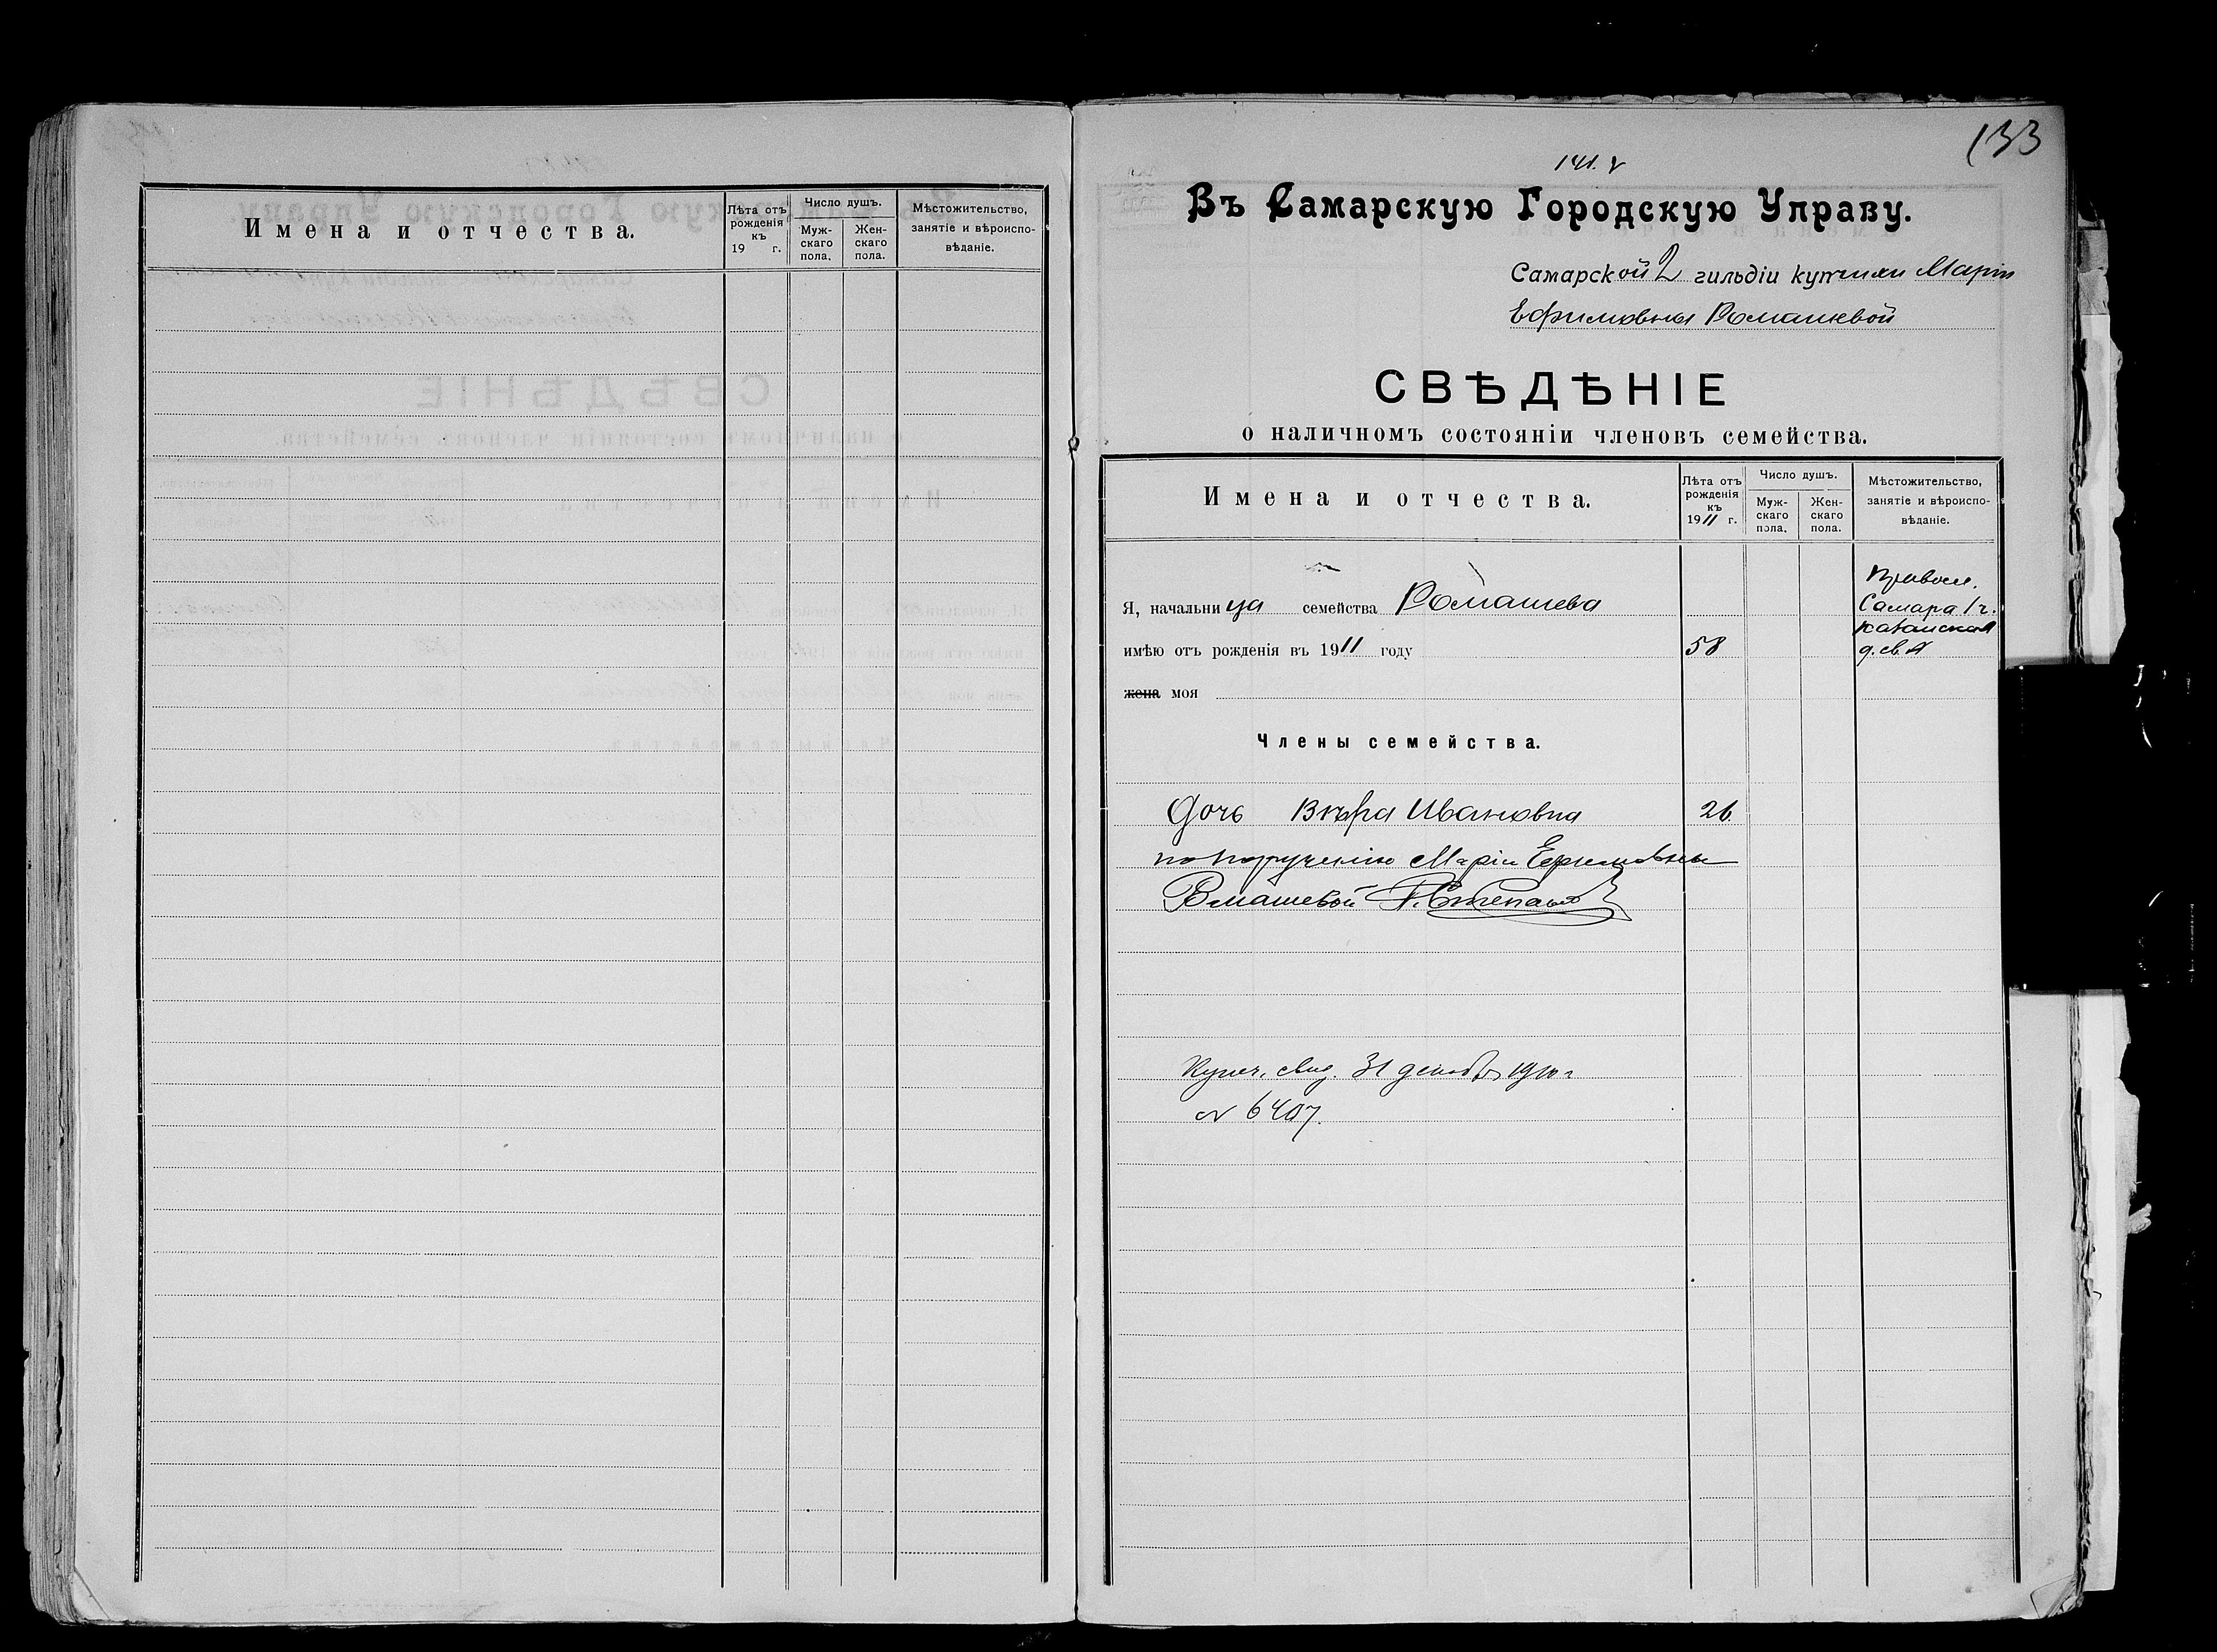 Имена и отчества.
Лѣта отъ рожденія къ 19 г.
Число душъ.
Мужскаго пола.
Женскаго пола.
Мѣстожительство, занятіе и вѣроисповѣданіе.
133
141.
Въ Самарскую Городскую Управу.
Самарской 2 гильдіи купчихи Маріи
Ефимовны Ромашевой
СВѢДѢНІЕ
о наличномъ состояніи членовъ семейства.
Имена и отчества.
Лѣта отъ рожденія къ 1911 г.
Число душъ.
Мужскаго пола.
Женскаго пола.
Мѣстожительство, занятіе и вѣроисповѣданіе.
Я, начальница семейства Ромашева
Правосл.
Самара 1 ч.
Казанская
имѣю отъ рожденія въ 1911 году 58
д. св.
жена моя
Члены семейства.
Дочь Вѣра Ивановна 26.
по порученію Маріи Ефимовны
Ромашевой Степановъ
Купеч. свид. 31 декабря 1910 г
№ 6407.